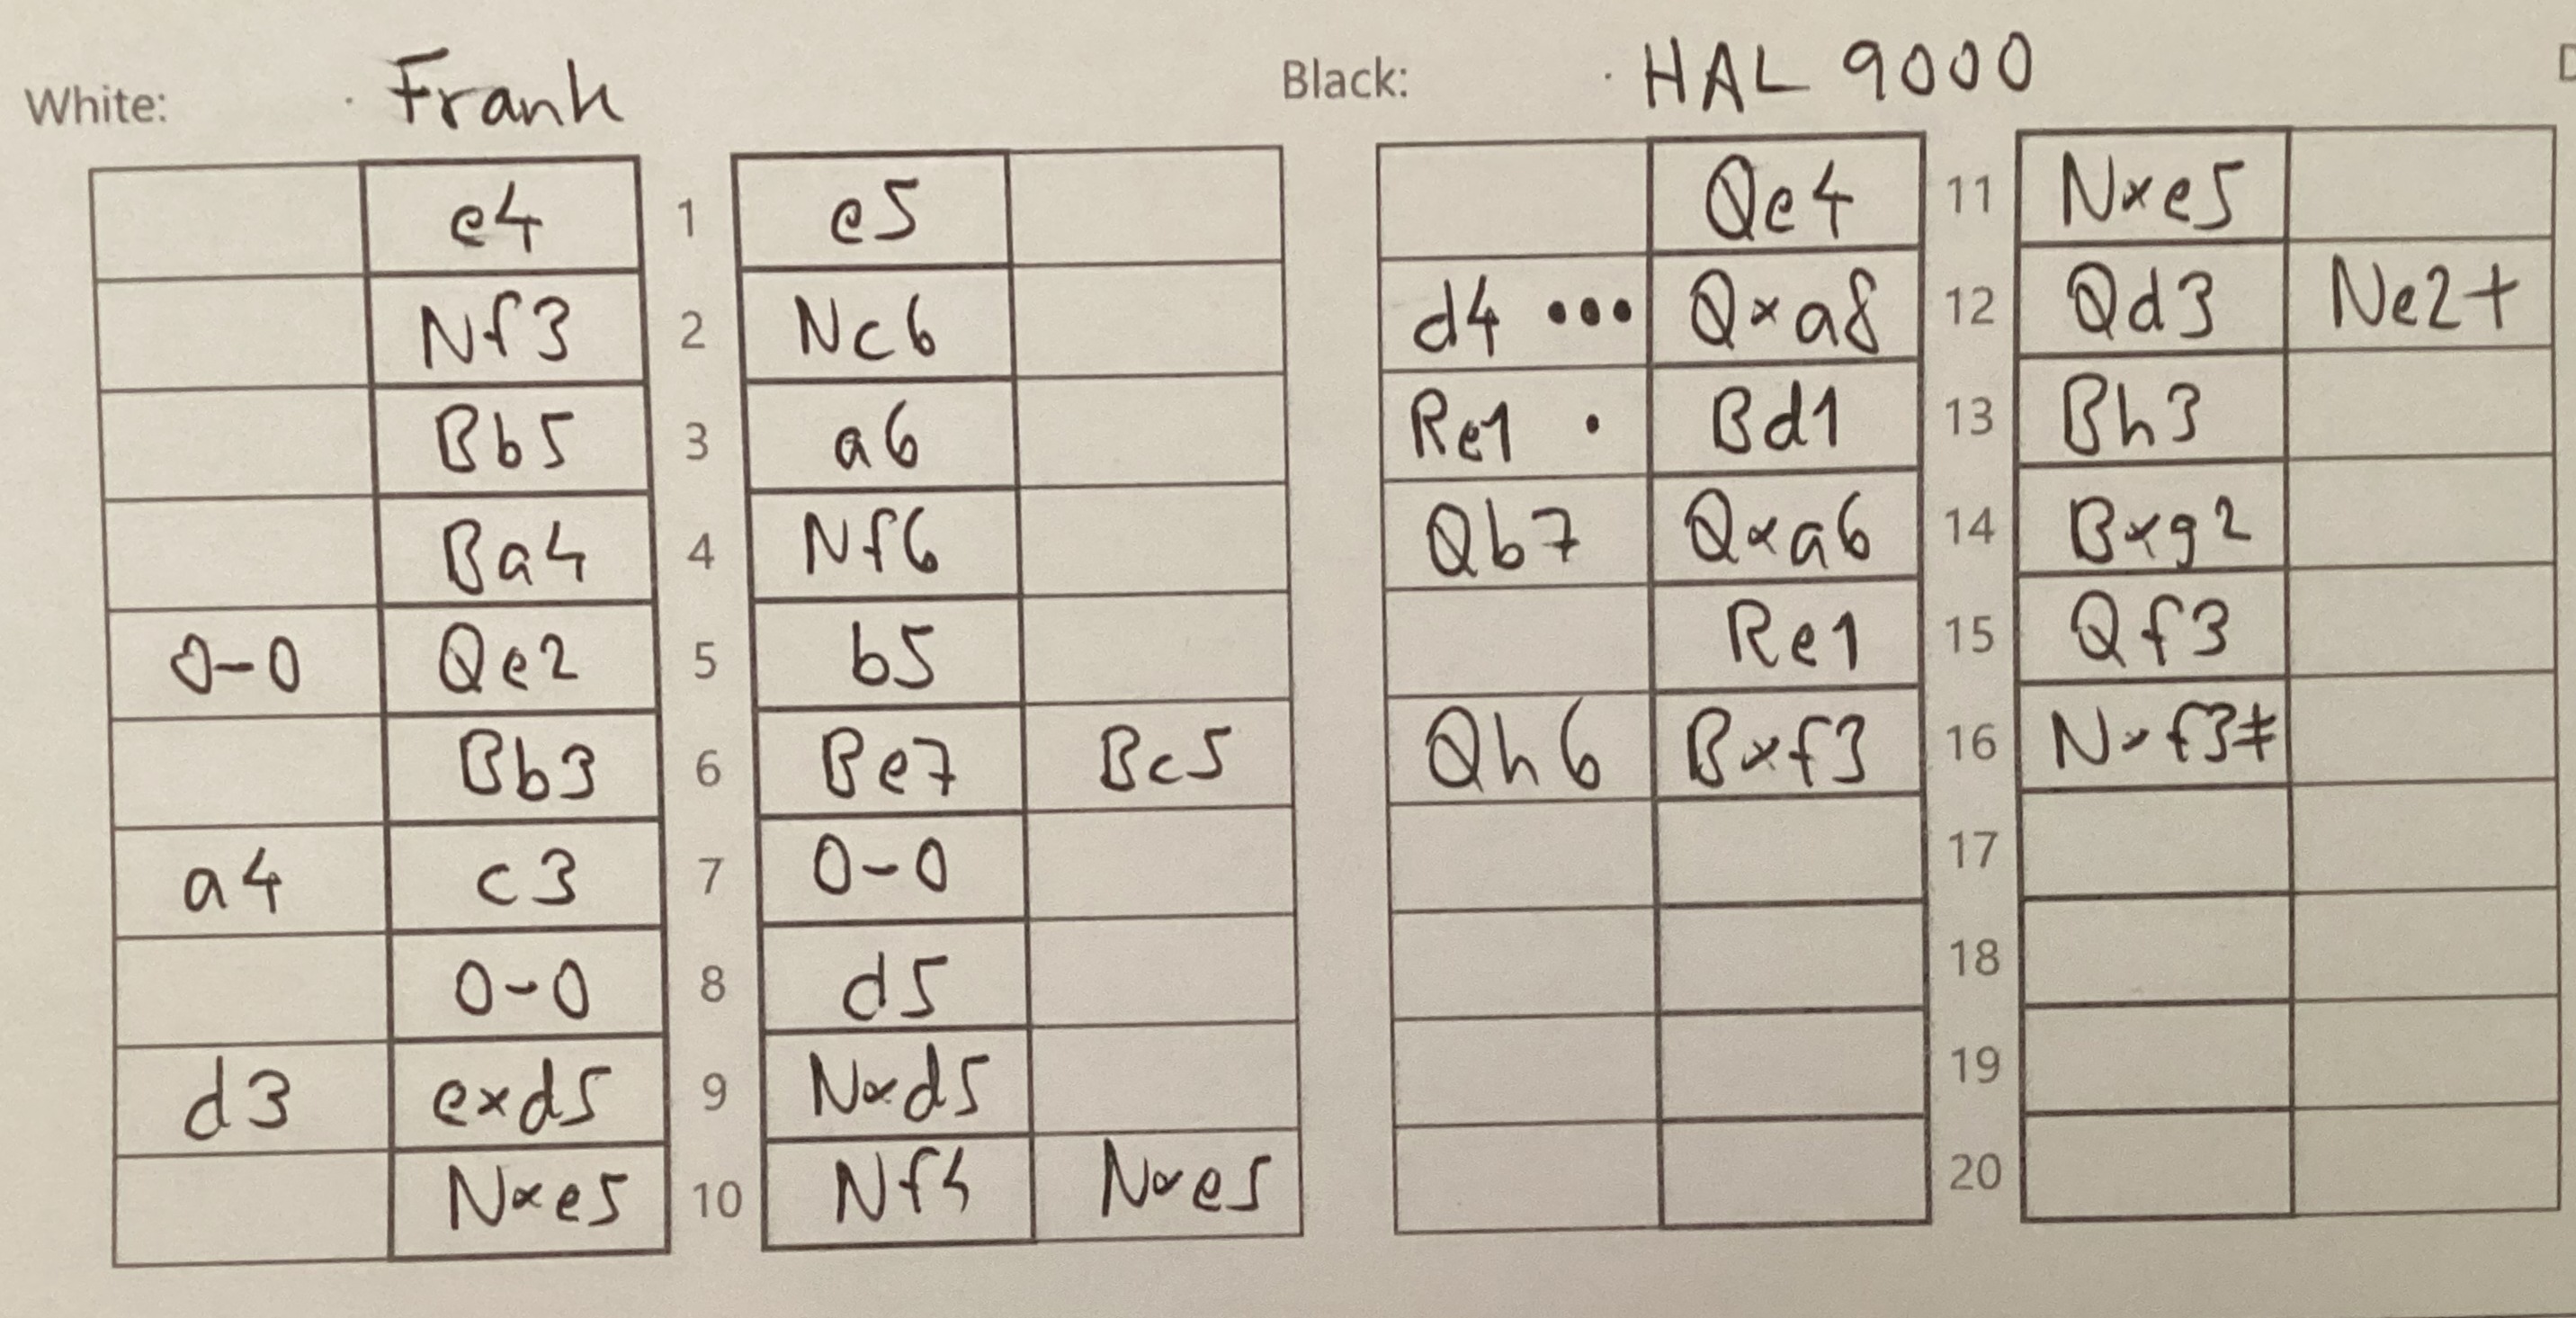 White: Frank Black: HAL 9000 D
e4 1 e5
Nf3 2 Nc6
Bb5 3 a6
Ba4 4 Nf6
0-0 Qe2 5 b5
Bb3 6 Be7 Bc5
a4 c3 7 0-0
0-0 8 d5
d3 exd5 9 Nxd5
Nxe5 10 Nf4 Nxe5
Qe4 11 Nxe5
d4 ••• Qxa8 12 Qd3 Ne2+
Re1 • Bd1 13 Bh3
Qb7 Qxa6 14 Bxg2
Re1 15 Qf3
Qh6 Bxf3 16 Nxf3#
17
18
19
20